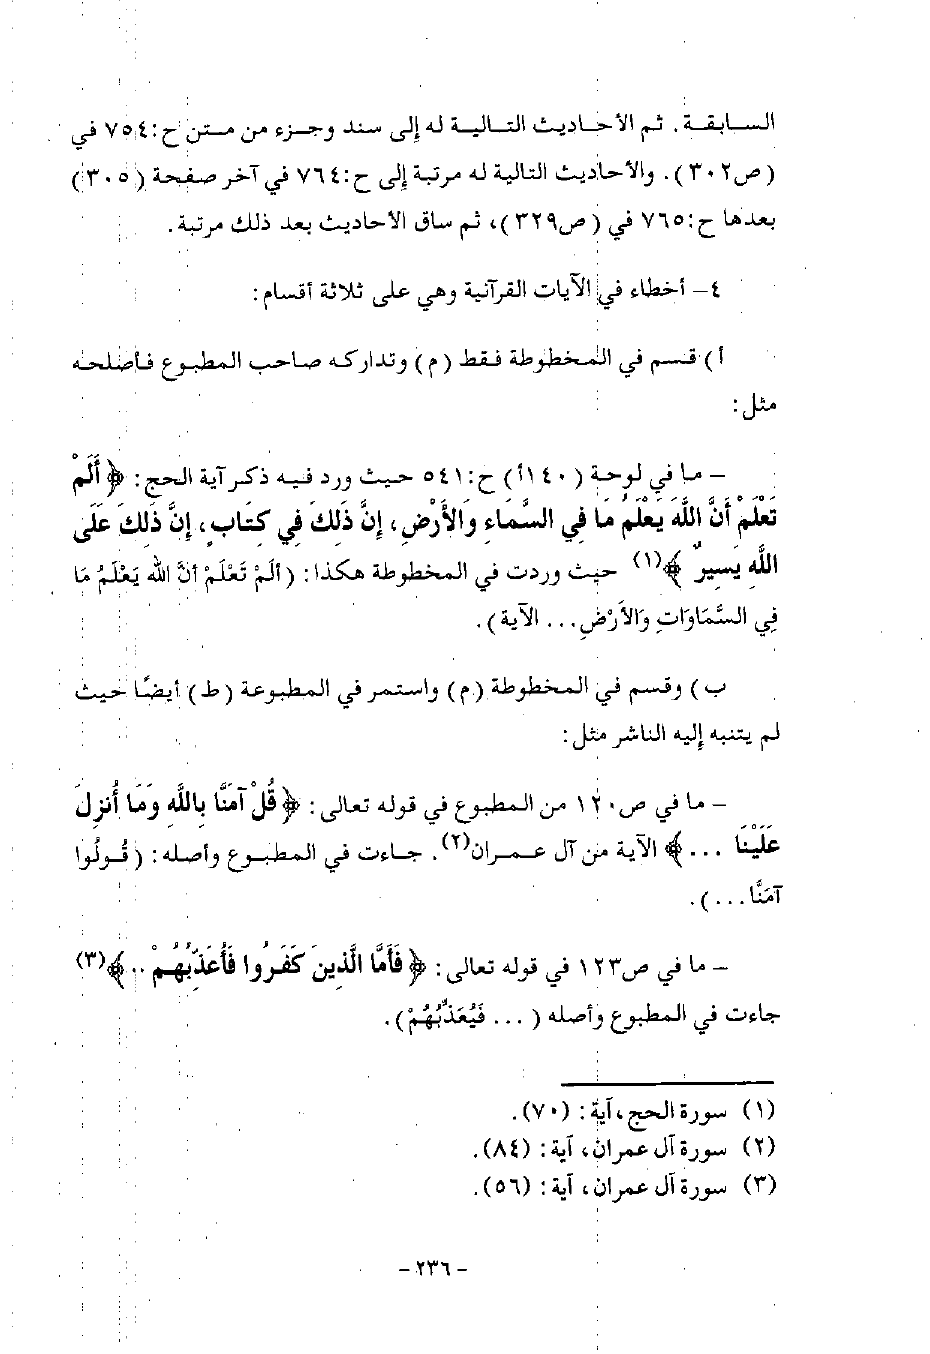 السابقة. ثم الأحاديث التالية له إلى سند وجزء من متن ح:٧٥٤ في
(ص٣٠٢). والأحاديث التالية له مرتبة إلى ح:٧٦٤ في آخر صفحة (٣٠٥)
بعدها ح:٧٦٥ في (ص٣٢٩)، ثم ساق الأحاديث بعد ذلك مرتبة.
٤- أخطاء في الآيات القرآنية وهي على ثلاثة أقسام:
أ) قسم في المخطوطة فقط (م) وتداركه صاحب المطبوع فأصلحه
مثل:
– ما في لوحة (١٤٠أ) ح:٥٤١ حيث ورد فيه ذكر آية الحج: ﴿أَلَمْ
تَعْلَمْ أَنَّ اللَّهَ يَعْلَمُ مَا فِي السَّمَاءِ وَالأَرْضِ، إِنَّ ذَلِكَ فِي كِتَابٍ، إِنَّ ذَلِكَ عَلَى
اللَّهِ يَسِيرٌ﴾(١) حيث وردت في المخطوطة هكذا: (أَلَمْ تَعْلَمْ أَنَّ الله يَعْلَمُ مَا
فِي السَّمَاوَاتِ وَالأَرْضِ... الآية).
ب) وقسم في المخطوطة (م) واستمر في المطبوعة (ط) أيضًا حيث
لم يتنبه إليه الناشر مثل:
– ما في ص١٢٠ من المطبوع في قوله تعالى: ﴿قُلْ آمَنَّا بِاللَّهِ وَمَا أُنزِلَ
عَلَيْنَا ...﴾ الآية من آل عمران(٢). جاءت في المطبوع وأصله: (قُولُوا
آمَنَّا...).
– ما في ص١٢٣ في قوله تعالى: ﴿فَأَمَّا الَّذِينَ كَفَرُوا فَأُعَذِّبُهُمْ ..﴾(٣)
جاءت في المطبوع وأصله (... فَيُعَذِّبُهُمْ).
(١) سورة الحج، آية: (٧٠).
(٢) سورة آل عمران، آية: (٨٤).
(٣) سورة آل عمران، آية: (٥٦).
- ٢٣٦ -